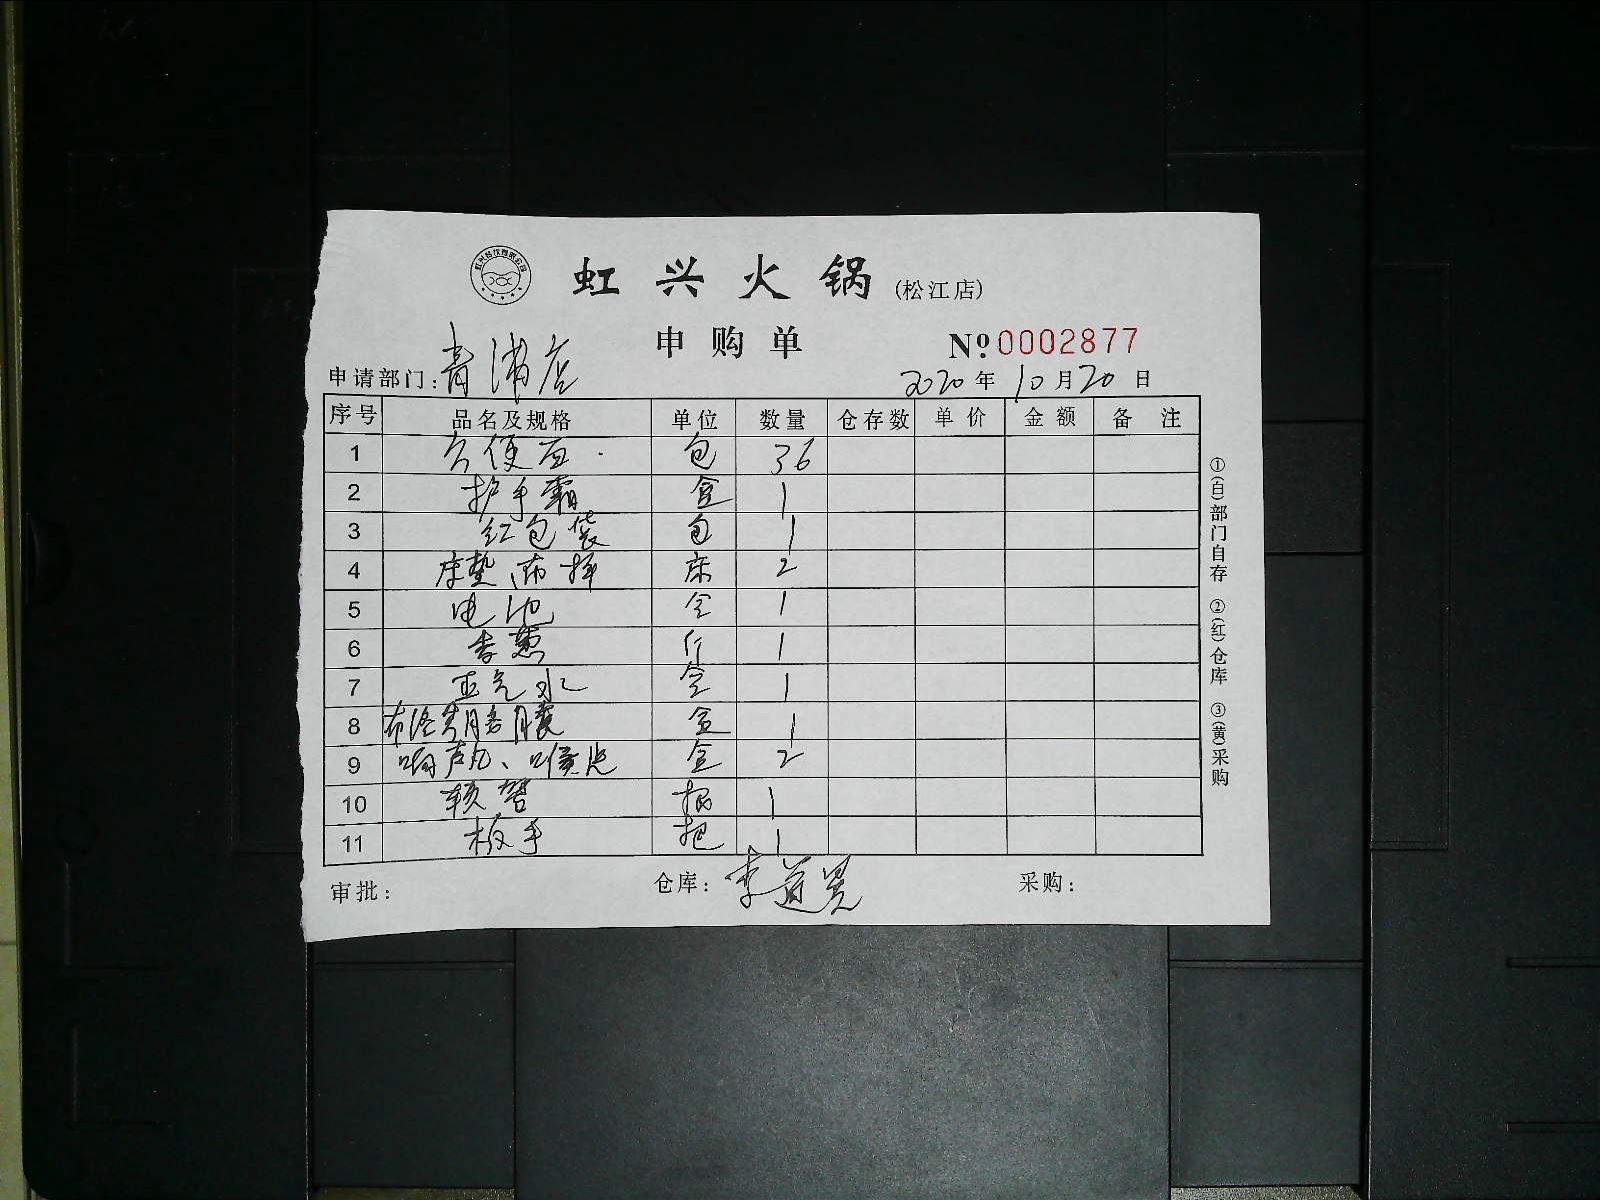 虹兴火锅 (松江店)
申购单 № 0002877
申请部门: 青浦店 2020 年 10 月 20 日
序号 品名及规格 单位 数量 仓存数 单价 金额 备注
1 方便面 包 36
2 护手霜 盒 1
3 红包袋 包 1
4 床垫、 床 2
5 电池 盒 1
6 斤 1
7 正气水 盒 1
8 布洛芬胶囊 盒 1
9 响声丸、喉 盒 2
10 软管 根 1
11 板手 把 1
审批: 仓库: 李 采购:
①(白)部门自存 ②(红)仓库 ③(黄)采购